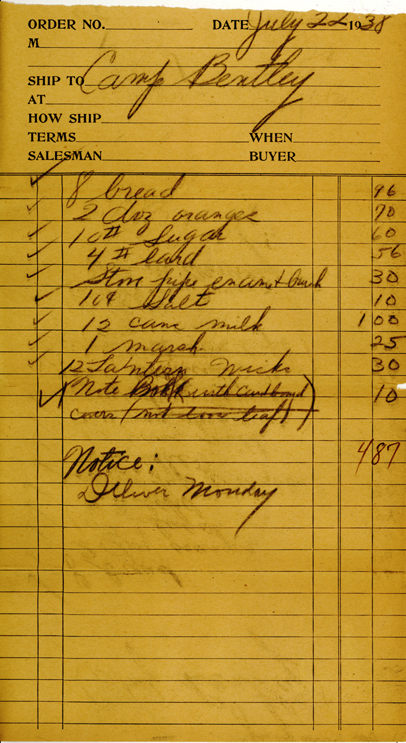 ORDER NO. DATE July 22 1938
M
SHIP TO Camp Bentley
AT
HOW SHIP
TERMS WHEN
SALESMAN BUYER
8 bread 96
2 doz oranges 70
10# Sugar 60
4# lard 56
Stove pipe enamel & brush 30
10¢ Salt 10
12 cans milk 1 00
1 marsh. 25
12 Lantern Wicks 30
Note Book (with Cardboard 10
covers (not loose leaf)
487
Notice:
Deliver Monday